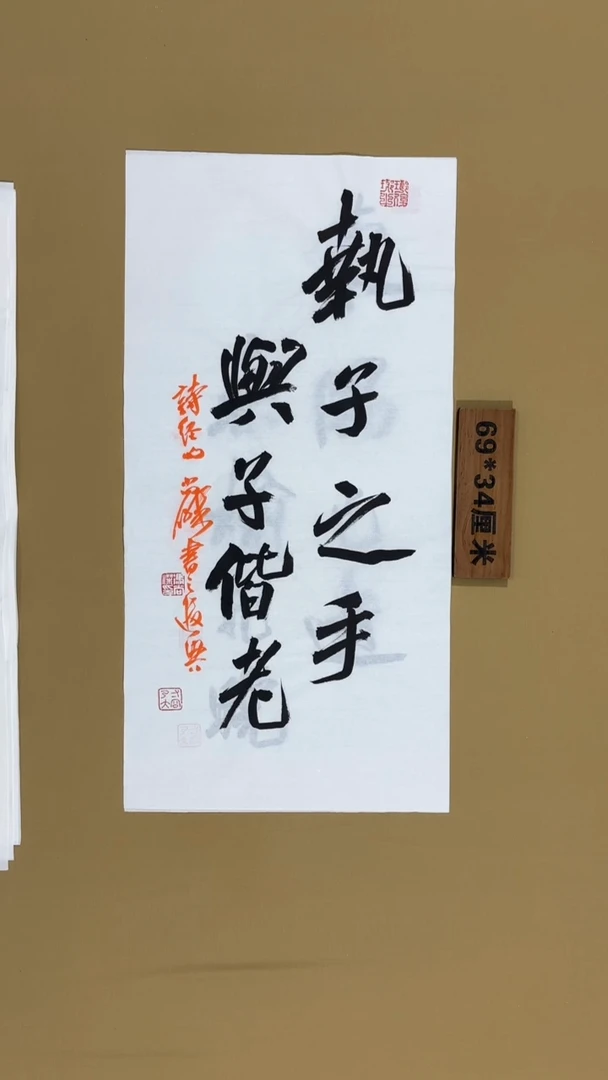 執子之手
與子偕老
詩經句
書之
69*34厘米